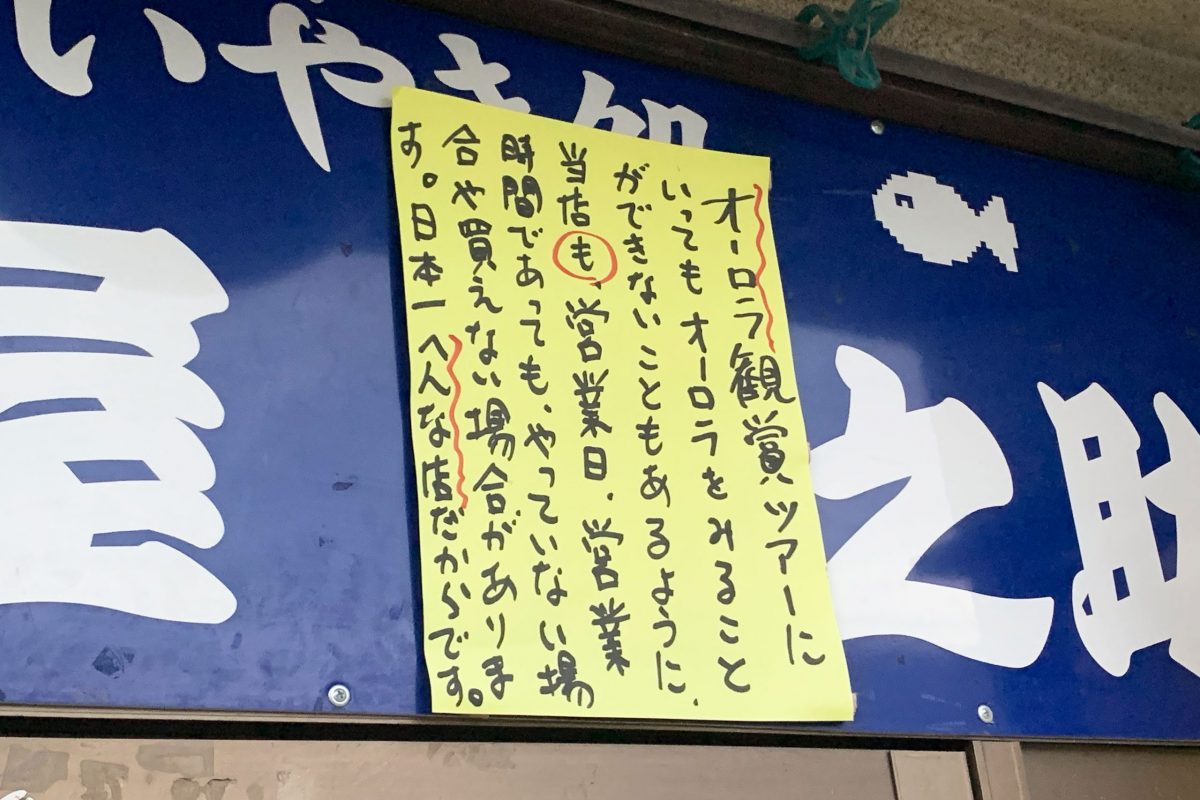 いやき処
之助
オーロラ観賞ツアーに
いってもオーロラをみること
ができないこともあるように、
当店も、営業日、営業
時間であっても、やっていない場
合や買えない場合がありま
す。日本一へんな店だからです。